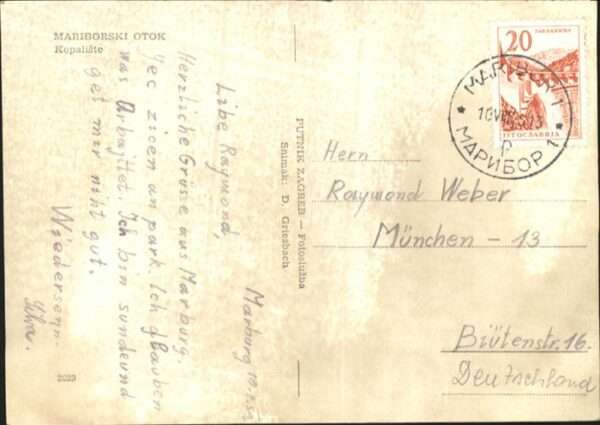 MARIBORSKI OTOK
Kopalište
Marburg 10.7.
Libe Raymond
Herzliche Grüse aus Marburg.
zicen an park. Ich glauben
was Arbajttet. Ich bin sundeund
get mir niht gut.
Wiedersenn
PUTNIK ZAGREB — Fotoslužba
Snimak: D. Griesbach
20
JUGOSLAVIJA
МАРИБОР 1
Hern
Raymond Weber
München - 13
Blütenstr. 16.
Deutschland